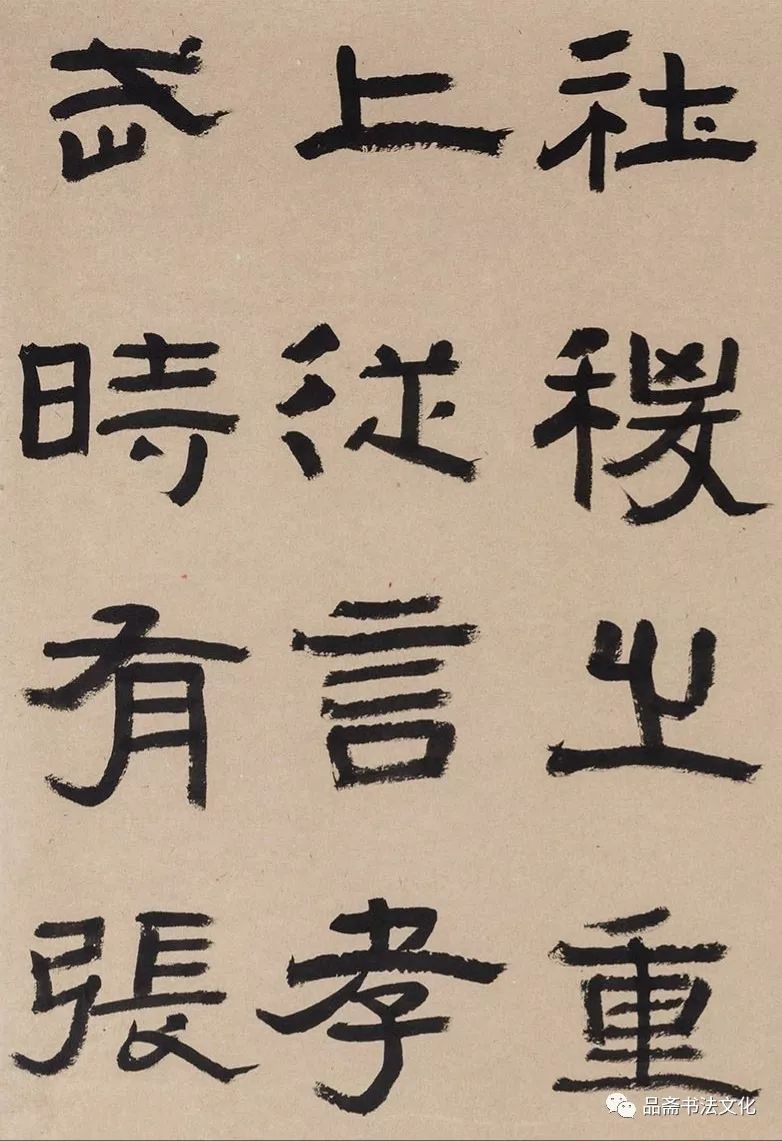 社稷之重
上從言孝
武時有張
品斋书法文化